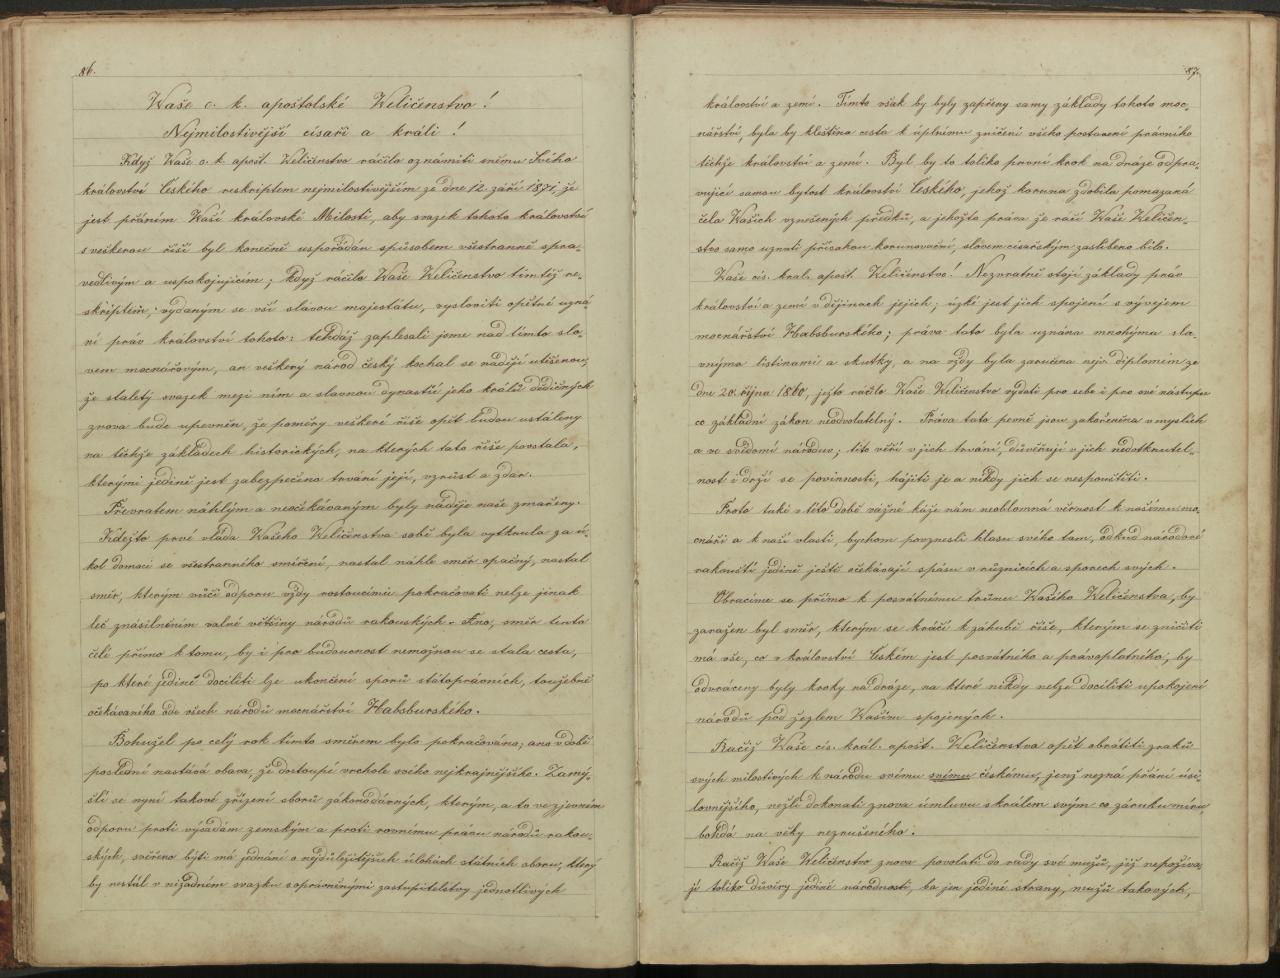 86.
Waše c. k. apoštolské Veličenstvo!
Nejmilostivější císaři a králi!
Když Waše c. k. apošt. Veličenstvo ráčilo oznámiti sněmu Svého
království Českého reskriptem nejmilostivějším ze dne 12. září 1871, že
jest přáním Waší královské Milosti, aby svazek tohoto království
s veškerou říší byl konečně uspořádán spůsobem všestranně spra-
vedlivým a uspokojujícím; když ráčilo Waše Veličenstvo tímtéž re-
skriptem, vydaným se vší slávou majestátu, vysloviti opětné uzná
ní práv království tohoto: tehdáž zaplesali jsme nad tímto slo-
vem mocnářovým, an veškerý národ český kochal se nadějí utěšenou,
že staletý svazek mezi ním a slavnou dynastií jeho králů dědičných
znova bude upevněn, že poměry veškeré říše opět budou ustáleny
na těchže základech historických, na kterých tato říše povstala,
kterými jedině jest zabezpečeno trvání její, vzrůst a zdar.
Převratem náhlým a neočekávaným byly naděje naše zmařeny.
Kdežto prvé vláda Wašeho Veličenstva sobě byla vytknula za ú-
kol domoci se všestranného smíření, nastal náhle směr opačný, nastal
směr, kterým vůči odporu vždy rostoucímu pokračovati nelze jinak
leč znásilněním valné většiny národů rakouských. Ano, směr tento
čelí přímo k tomu, by i pro budoucnost nemožnou se stala cesta,
po které jedině docíliti lze ukončení sporů státoprávních, toužebně
očekávaného ode všech národů mocnářství Habsburského.
Bohužel po celý rok tímto směrem bylo pokračováno; ano v době
poslední nastává obava, že dostoupí vrchole svého nejkrajnějšího. Zamý-
šlí se nyní takové zřízení sborů zákonodárných, kterým, a to ve zjevném
odporu proti výsadám zemským a proti rovnému právu národů rakou-
ských, svěřeno býti má jednání o nejdůležitějších úlohách státních sboru, který
by nestál v nižádném svazku s oprávněnými zastupitelstvy jednotlivých
87.
království a zemí. Tímto však by byly zapřeny samy základy tohoto moc-
nářství, byla by kleštěna cesta k úplnému zničení všeho postavení právního
těchže království a zemí. Byl by to toliko první krok na dráze odpra-
vující samou bytost království Českého, jehož koruna zdobila pomazaná
čela Wašich vznešených předků, a jehožto práva že ráčí Waše Veličen-
stvo samo uznati přísahou korunovační, slovem císařským zaslíbeno bylo.
Waše cís. kral. apošt. Veličenstvo! Nezvratně stojí základy práv
království a zemí v dějinach jejich; úzké jest jich spojení s vývojem
mocnářství Habsburského; práva tato byla uznána mnohýma sla-
vnýma listinami a skutky, a na vždy byla zaručena nejv. diplomem ze
dne 20. října 1860, jejžto ráčilo Waše Veličenstvo vydati pro sebe i pro své nástupce
co základní zákon neodvolatelný. Práva tato pevně jsou zakořeněna v myslích
a ve svědomí národův; tito věří v jich trvání, důvěřují v jich nedotknutel-
nost i drží se povinnosti, hájiti je a nikdy jich se nespouštěti.
Proto také v této době vážné káže nám neoblomná věrnost k našemu mo-
cnáři a k naší vlasti, bychom povznesli hlasu svého tam, odkud národové
rakouští jedině ještě očekávají spásu v různicích a sporech svých.
Obracíme se přímo k posvátnému trůnu Wašeho Veličenstva, by
zaražen byl směr, kterým se kráčí k záhubě říše, kterým se zničiti
má vše, co v království Českém jest posvátného a právoplatného, by
odvráceny byly kroky na dráze, na které nikdy nelze docíliti upokojení
národů pod žezlem Wašim spojených.
Račiž Waše cís. král. apošt. Veličenstvo opět obrátiti zraků
svých milostivých k národu svému svému českému, jenž nezná přání úsi-
lovnějšího, nežli dokonati znova úmluvu s králem svým co záruku míru,
bohdá na věky nezrušeného.
Račiž Waše Veličenstvo znova povolati do rady své mužů, již nepožíva-
jí toliko důvěry jediné národnosti, ba jen jediné strany, mužů takových,